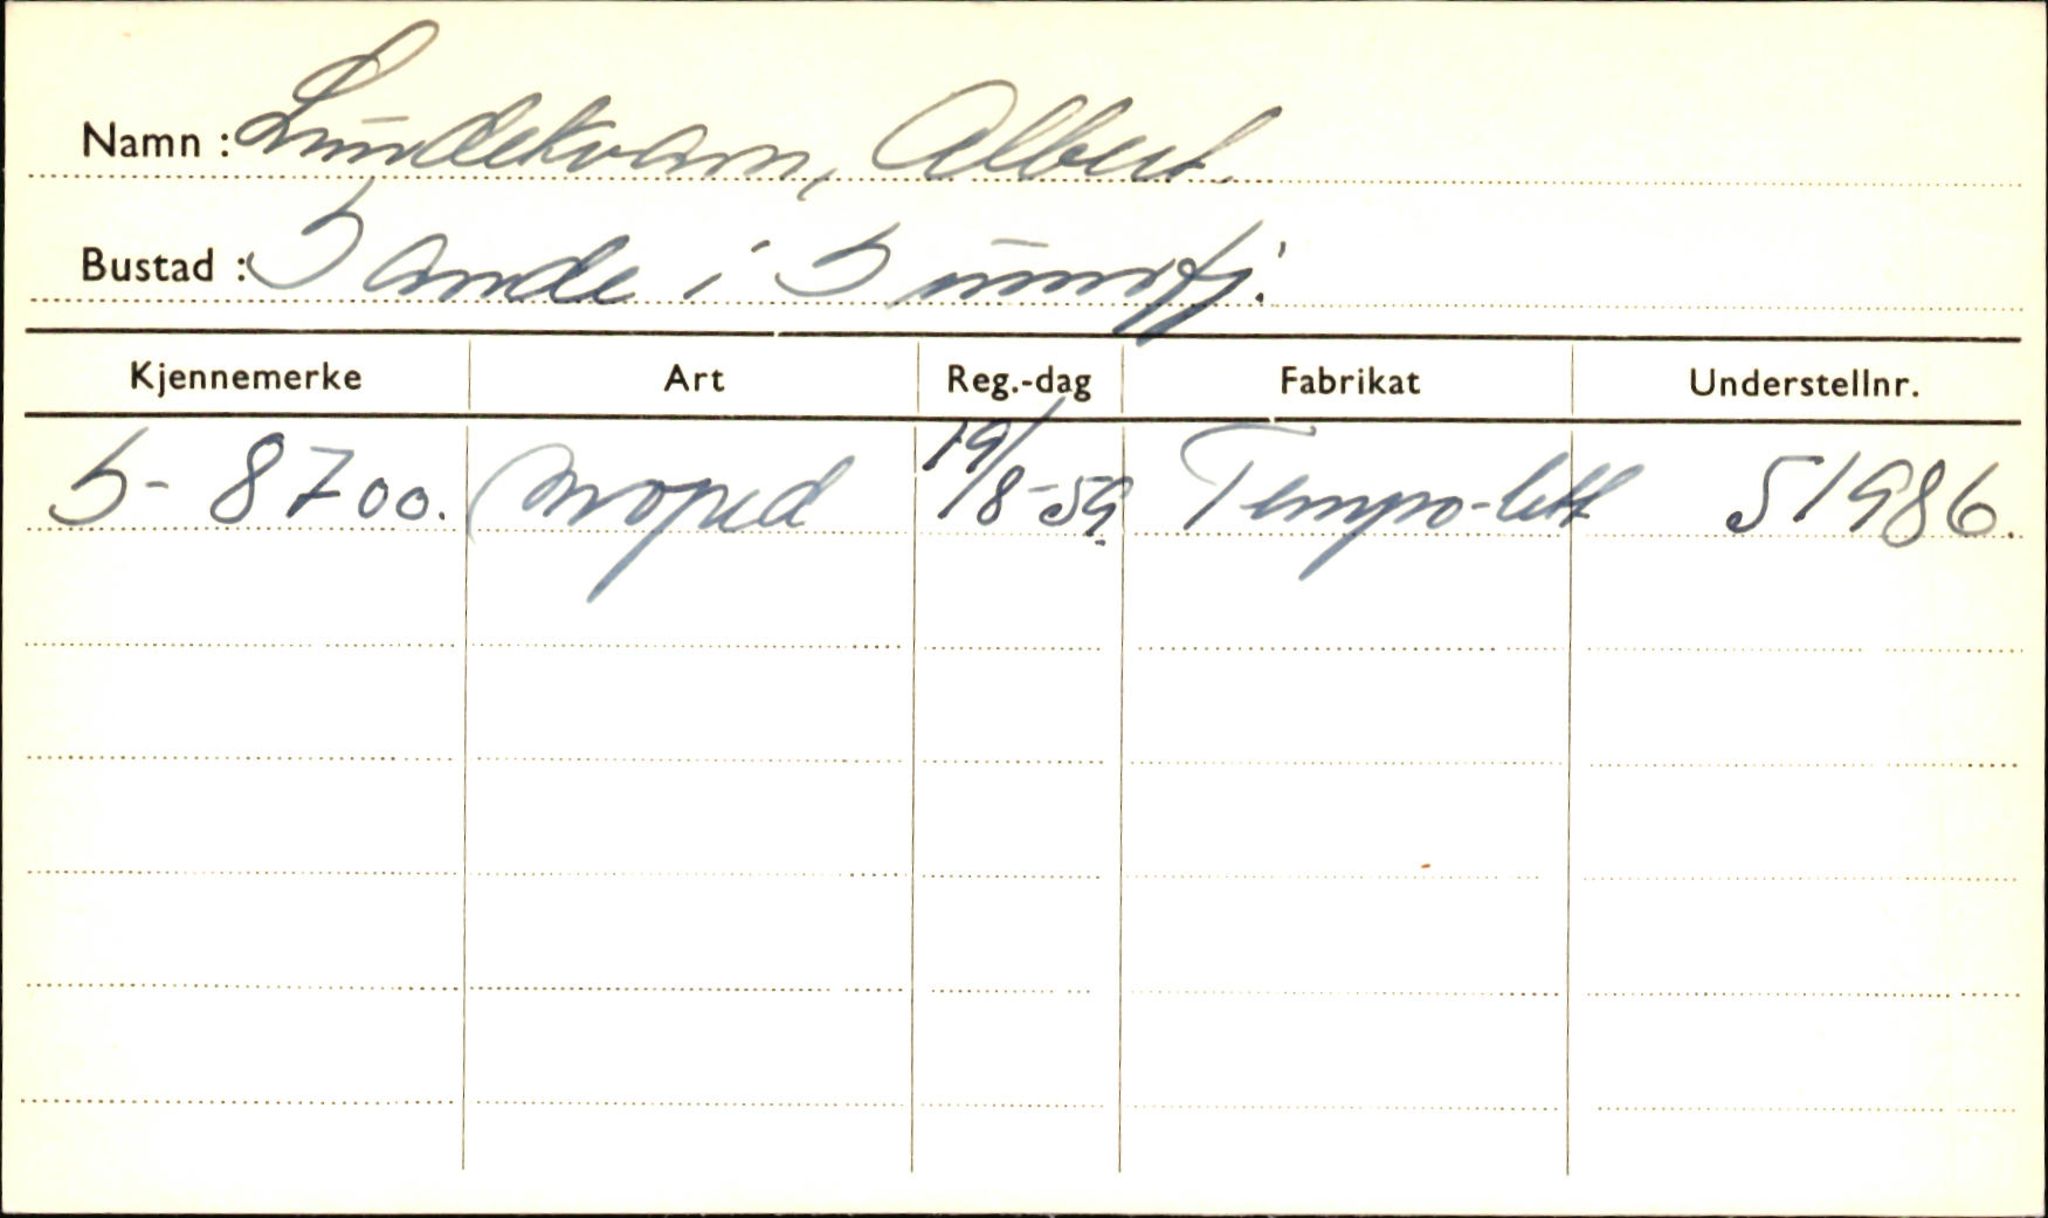 Namn : Lundekvam, Albert.
Bustad : Sande i Sunnfj.
Kjennemerke Art Reg.-dag Fabrikat Understellnr.
S- 8700. moped 19/8-59 Tempo-lett 51986.